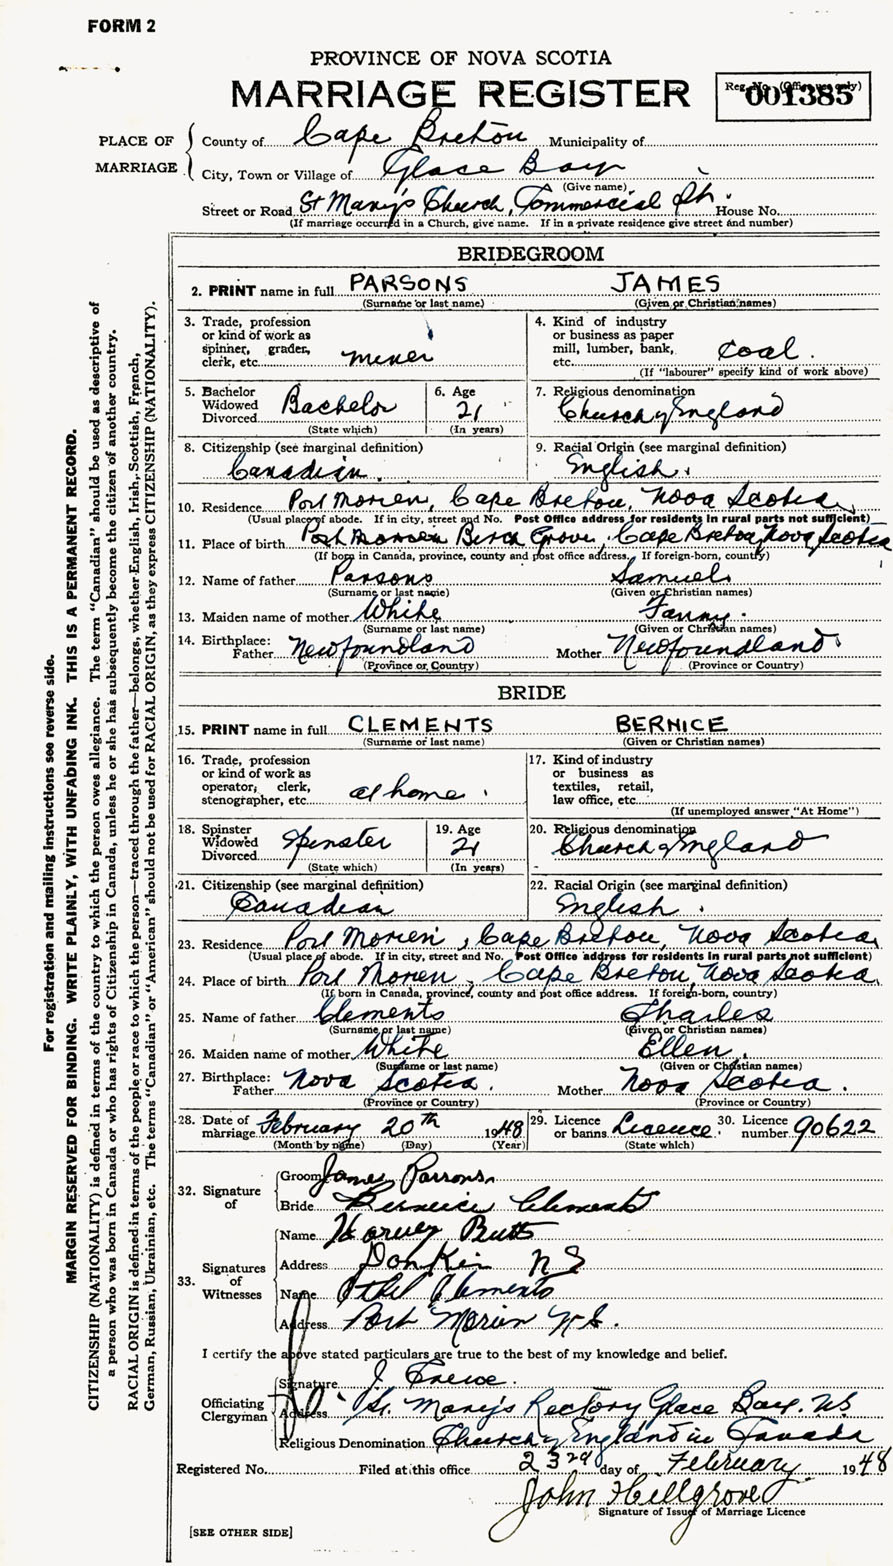 FORM 2
PROVINCE OF NOVA SCOTIA
MARRIAGE REGISTER
Reg. No. (Office use only)
001385
PLACE OF MARRIAGE
County of Cape Breton Municipality of
City, Town or Village of Glace Bay
(Give name)
Street or Road St Mary's Church, Commercial St. House No.
(If marriage occurred in a Church, give name. If in a private residence give street and number)
BRIDEGROOM
2. PRINT name in full PARSONS JAMES
(Surname or last name) (Given or Christian names)
3. Trade, profession or kind of work as spinner, grader, clerk, etc. miner
4. Kind of industry or business as paper mill, lumber, bank, etc. Coal.
(If "labourer" specify kind of work above)
5. Bachelor Widowed Divorced Bachelor
(State which)
6. Age 21
(In years)
7. Religious denomination
Church of England
8. Citizenship (see marginal definition)
Canadian.
9. Racial Origin (see marginal definition)
English.
10. Residence Port Morien, Cape Breton, Nova Scotia
(Usual place of abode. If in city, street and No. Post Office address for residents in rural parts not sufficient)
11. Place of birth Port Morien Birch Grove, Cape Breton, Nova Scotia
(If born in Canada, province, county and post office address. If foreign-born, country)
12. Name of father Parsons Samuel
(Surname or last name) (Given or Christian names)
13. Maiden name of mother White Fanny.
(Surname or last name) (Given or Christian names)
14. Birthplace: Father Newfoundland Mother Newfoundland
(Province or Country) (Province or Country)
BRIDE
15. PRINT name in full CLEMENTS BERNICE
(Surname or last name) (Given or Christian names)
16. Trade, profession or kind of work as operator, clerk, stenographer, etc. at home.
17. Kind of industry or business as textiles, retail, law office, etc.
(If unemployed answer "At Home")
18. Spinster Widowed Divorced Spinster
(State which)
19. Age 21
(In years)
20. Religious denomination
Church of England
21. Citizenship (see marginal definition)
Canadian
22. Racial Origin (see marginal definition)
English.
23. Residence Port Morien, Cape Breton, Nova Scotia
(Usual place of abode. If in city, street and No. Post Office address for residents in rural parts not sufficient)
24. Place of birth Port Morien, Cape Breton, Nova Scotia
(If born in Canada, province, county and post office address. If foreign-born, country)
25. Name of father Clements Charles
(Surname or last name) (Given or Christian names)
26. Maiden name of mother White Ellen.
(Surname or last name) (Given or Christian names)
27. Birthplace: Father Nova Scotia. Mother Nova Scotia.
(Province or Country) (Province or Country)
28. Date of marriage February 20th 1948
(Month by name) (Day) (Year)
29. Licence or banns Licence.
(State which)
30. Licence number 90622
32. Signature of
Groom James Parsons.
Bride Bernice Clements
33. Signatures of Witnesses
Name Harvey Butts
Address Donkin NS
Name Ethel Clements
Address Port Morien N.S.
I certify the above stated particulars are true to the best of my knowledge and belief.
Officiating Clergyman
Signature J.
Address St. Mary's Rectory Glace Bay. N.S
Religious Denomination Church of England in Canada
Registered No. Filed at this office 23rd day of February 1948
John Hillgrove
Signature of Issuer of Marriage Licence
[SEE OTHER SIDE]
For registration and mailing instructions see reverse side.
MARGIN RESERVED FOR BINDING. WRITE PLAINLY, WITH UNFADING INK. THIS IS A PERMANENT RECORD.
CITIZENSHIP (NATIONALITY) is defined in terms of the country to which the person owes allegiance. The term "Canadian" should be used as descriptive of
a person who was born in Canada or who has rights of Citizenship in Canada, unless he or she has subsequently become the citizen of another country.
RACIAL ORIGIN is defined in terms of the people or race to which the person—traced through the father—belongs, whether English, Irish, Scottish, French,
German, Russian, Ukrainian, etc. The terms "Canadian" or "American" should not be used for RACIAL ORIGIN, as they express CITIZENSHIP (NATIONALITY).